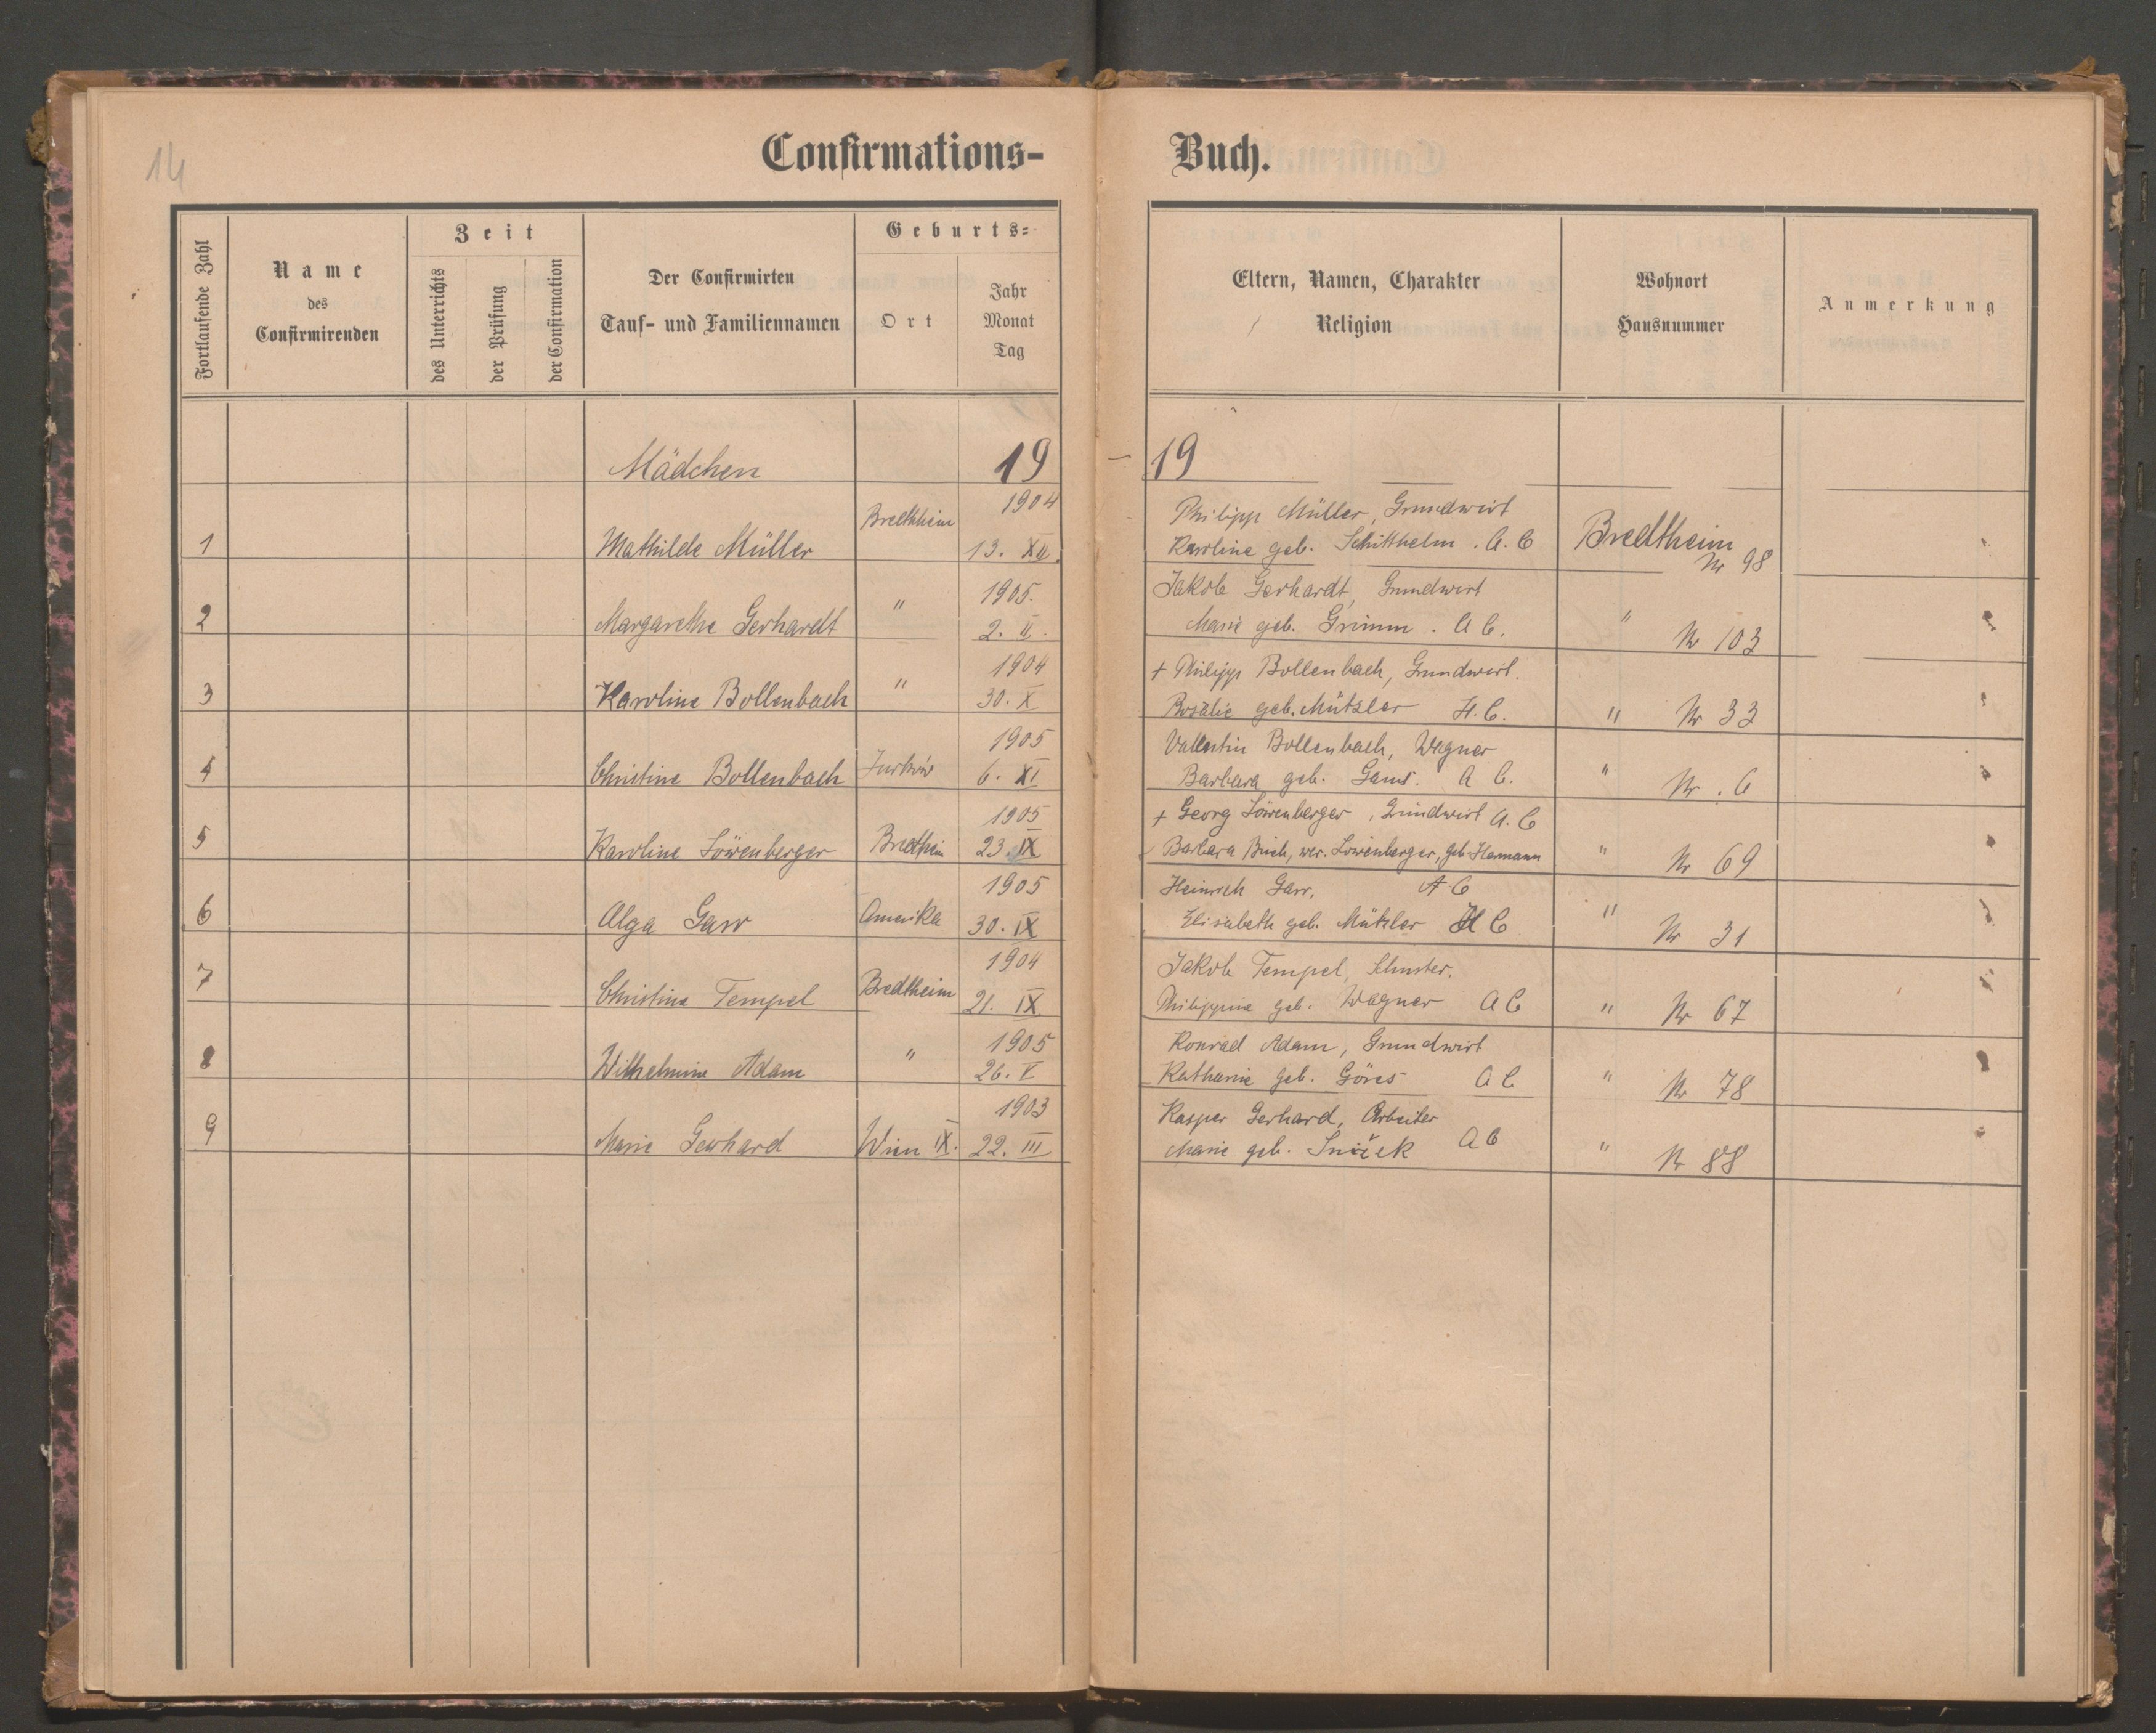 14
Confirmations-
Buch.
Fortlaufende Zahl
Name
des
Confirmirenden
Zeit
des Unterrichts
der Prüfung
der Confirmation
Der Confirmirten
Tauf- und Familiennamen
Geburts=
Ort
Jahr
Monat
Tag
Eltern, Namen, Charakter
Religion
Wohnort
Hausnummer
Anmerkung
Mädchen 19 19
1904
Philipp Müller, Grundwirt
1 Mathilde Müller Bredtheim 13. XII.
Karoline geb. Schitthelm. A. C
Bredtheim
Nr 98
1905.
Jakob Gerhardt, Grundwirt
2 Margarethe Gerhardt " 2. II.
Marie geb. Grimm. A C. " Nr 103
1904
+ Philipp Bollenbach, Grundwirt.
3 Karoline Bollenbach " 30. X
Rosalie geb. Mützler H. C. " Nr 33
1905
Valentin Bollenbach, Wagner
4 Christine Bollenbach 6. XI
Barbara geb. Gams. A C. " Nr. 6
1905
+ Georg Löwenberger, Grundwirt A. C
5 Karoline Löwenberger Bredtheim 23. IX
Barbara Buch, wer. Löwenberger, geb. Hamann " Nr 69
1905
Heinrich Garr, A C
6 Alga Garr Amerika 30. IX
Elisabeth geb. Mützler H C " Nr 31
1904
Jakob Tempel, Schuster,
7 Christine Tempel Bredtheim 21. IX
Philippine geb. Wagner A C " Nr 67
1905
Konrad Adam, Grundwirt
8 Wilhelmine Adam " 26. V
Katharine geb. Göres A C " Nr 78
1903
Kasper Gerhard, Arbeiter
9 Marie Gerhard Wien IX. 22. III
Marie geb. A C " Nr 88